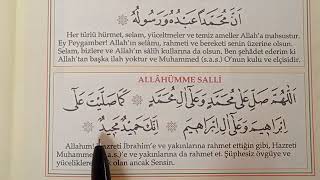 اَنَّ مُحَمَّدًا عَبْدُهُ وَرَسُولُهُ
Her türlü hürmet, selam, yüceltmeler ve temiz ameller Allah'a mahsustur.
Ey Peygamber! Allah'ın selâmı, rahmeti ve bereketi senin üzerine olsun.
Selam, bizlere ve Allah'ın salih kullarına da olsun. Ben şehâdet ederim ki
Allah'tan başka ilah yoktur ve Muhammed (s.a.s.) O'nun kulu ve elçisidir.
ALLÂHÜMME SALLİ
اَللّٰهُمَّ صَلِّ عَلٰى مُحَمَّدٍ وَعَلٰى اٰلِ مُحَمَّدٍ كَمَا صَلَّيْتَ عَلٰى
اِبْرَاهِيمَ وَعَلٰى اٰلِ اِبْرَاهِيمَ اِنَّكَ حَمِيدٌ مَجِيدٌ
Allahım! Hazreti İbrahim'e ve yakınlarına rahmet ettiğin gibi, Hazreti
Muhammed (s.a.s.)'e ve yakınlarına da rahmet et. Şüphesiz övgüye
ve yüceliklere olan ancak Sensin.